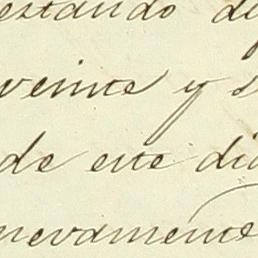 estando de
veinte y s
de este dia
nuevamente